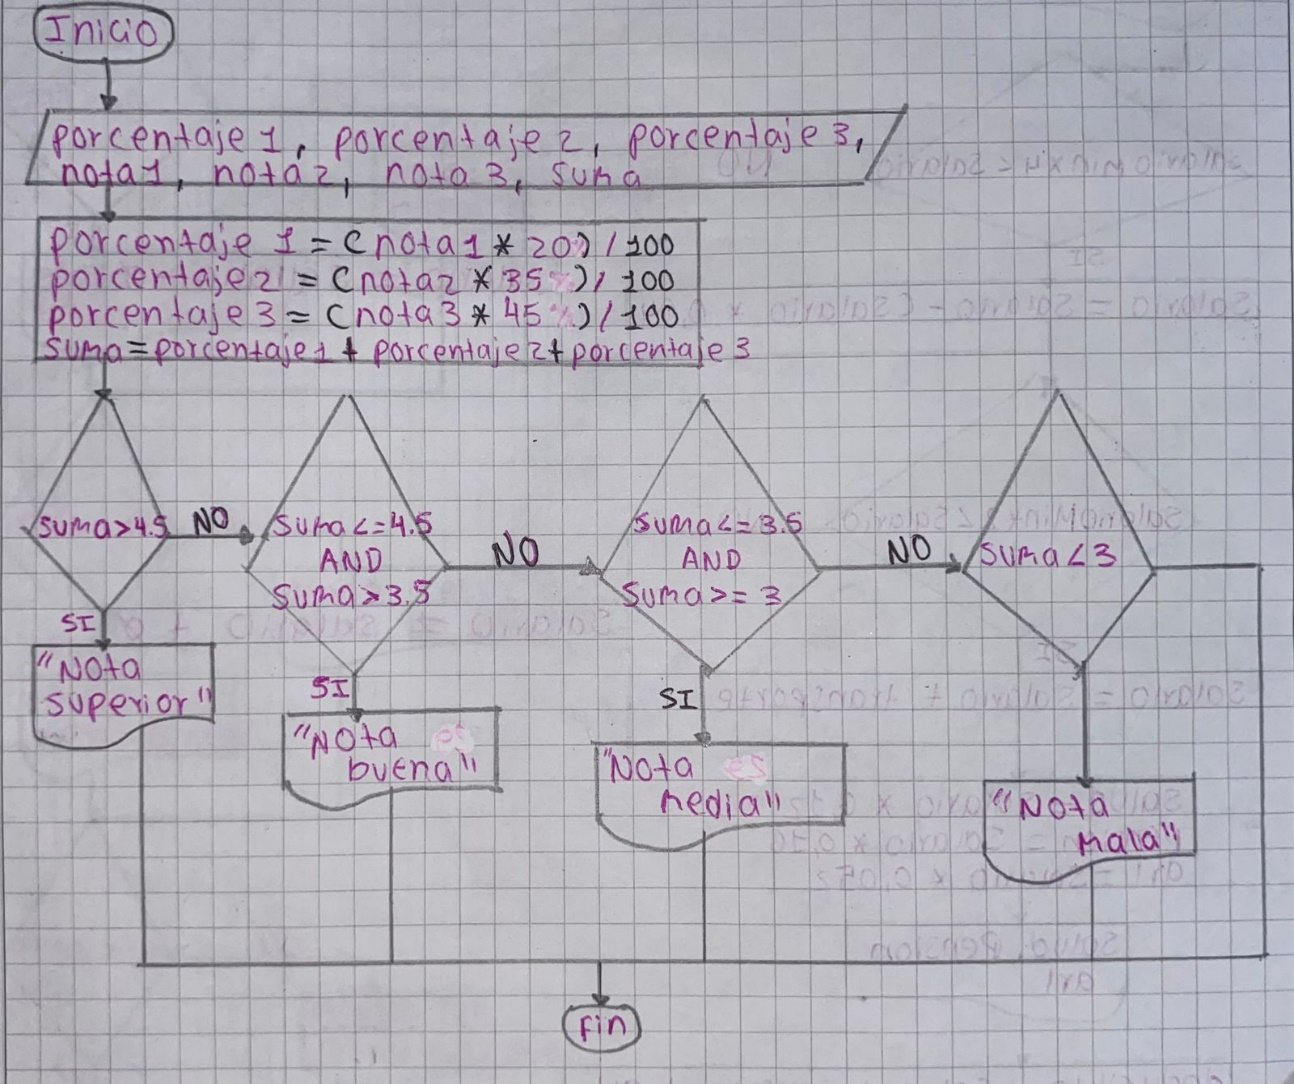 Inicio
porcentaje 1, porcentaje 2, porcentaje 3,
nota1, nota2, nota 3, suma
porcentaje 1 = (nota1 * 20)/100
porcentaje2 = (nota2 * 35)/100
porcentaje 3 = (nota3 * 45)/100
suma=porcentaje1 + porcentaje2+porcentaje 3
suma>4.5
NO
suma<=4.5
AND
suma>3.5
NO
suma<=3.5
AND
suma>= 3
NO
suma<3
SI
"Nota
superior"
SI
"Nota
buena"
SI
"Nota
media"
"Nota
mala"
fin